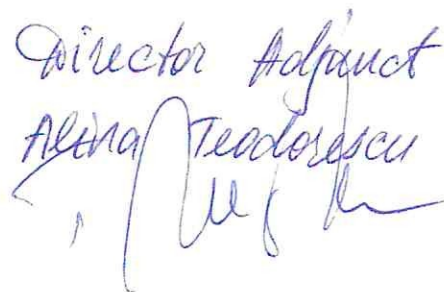 Director Adjunct
Alina Teodorescu